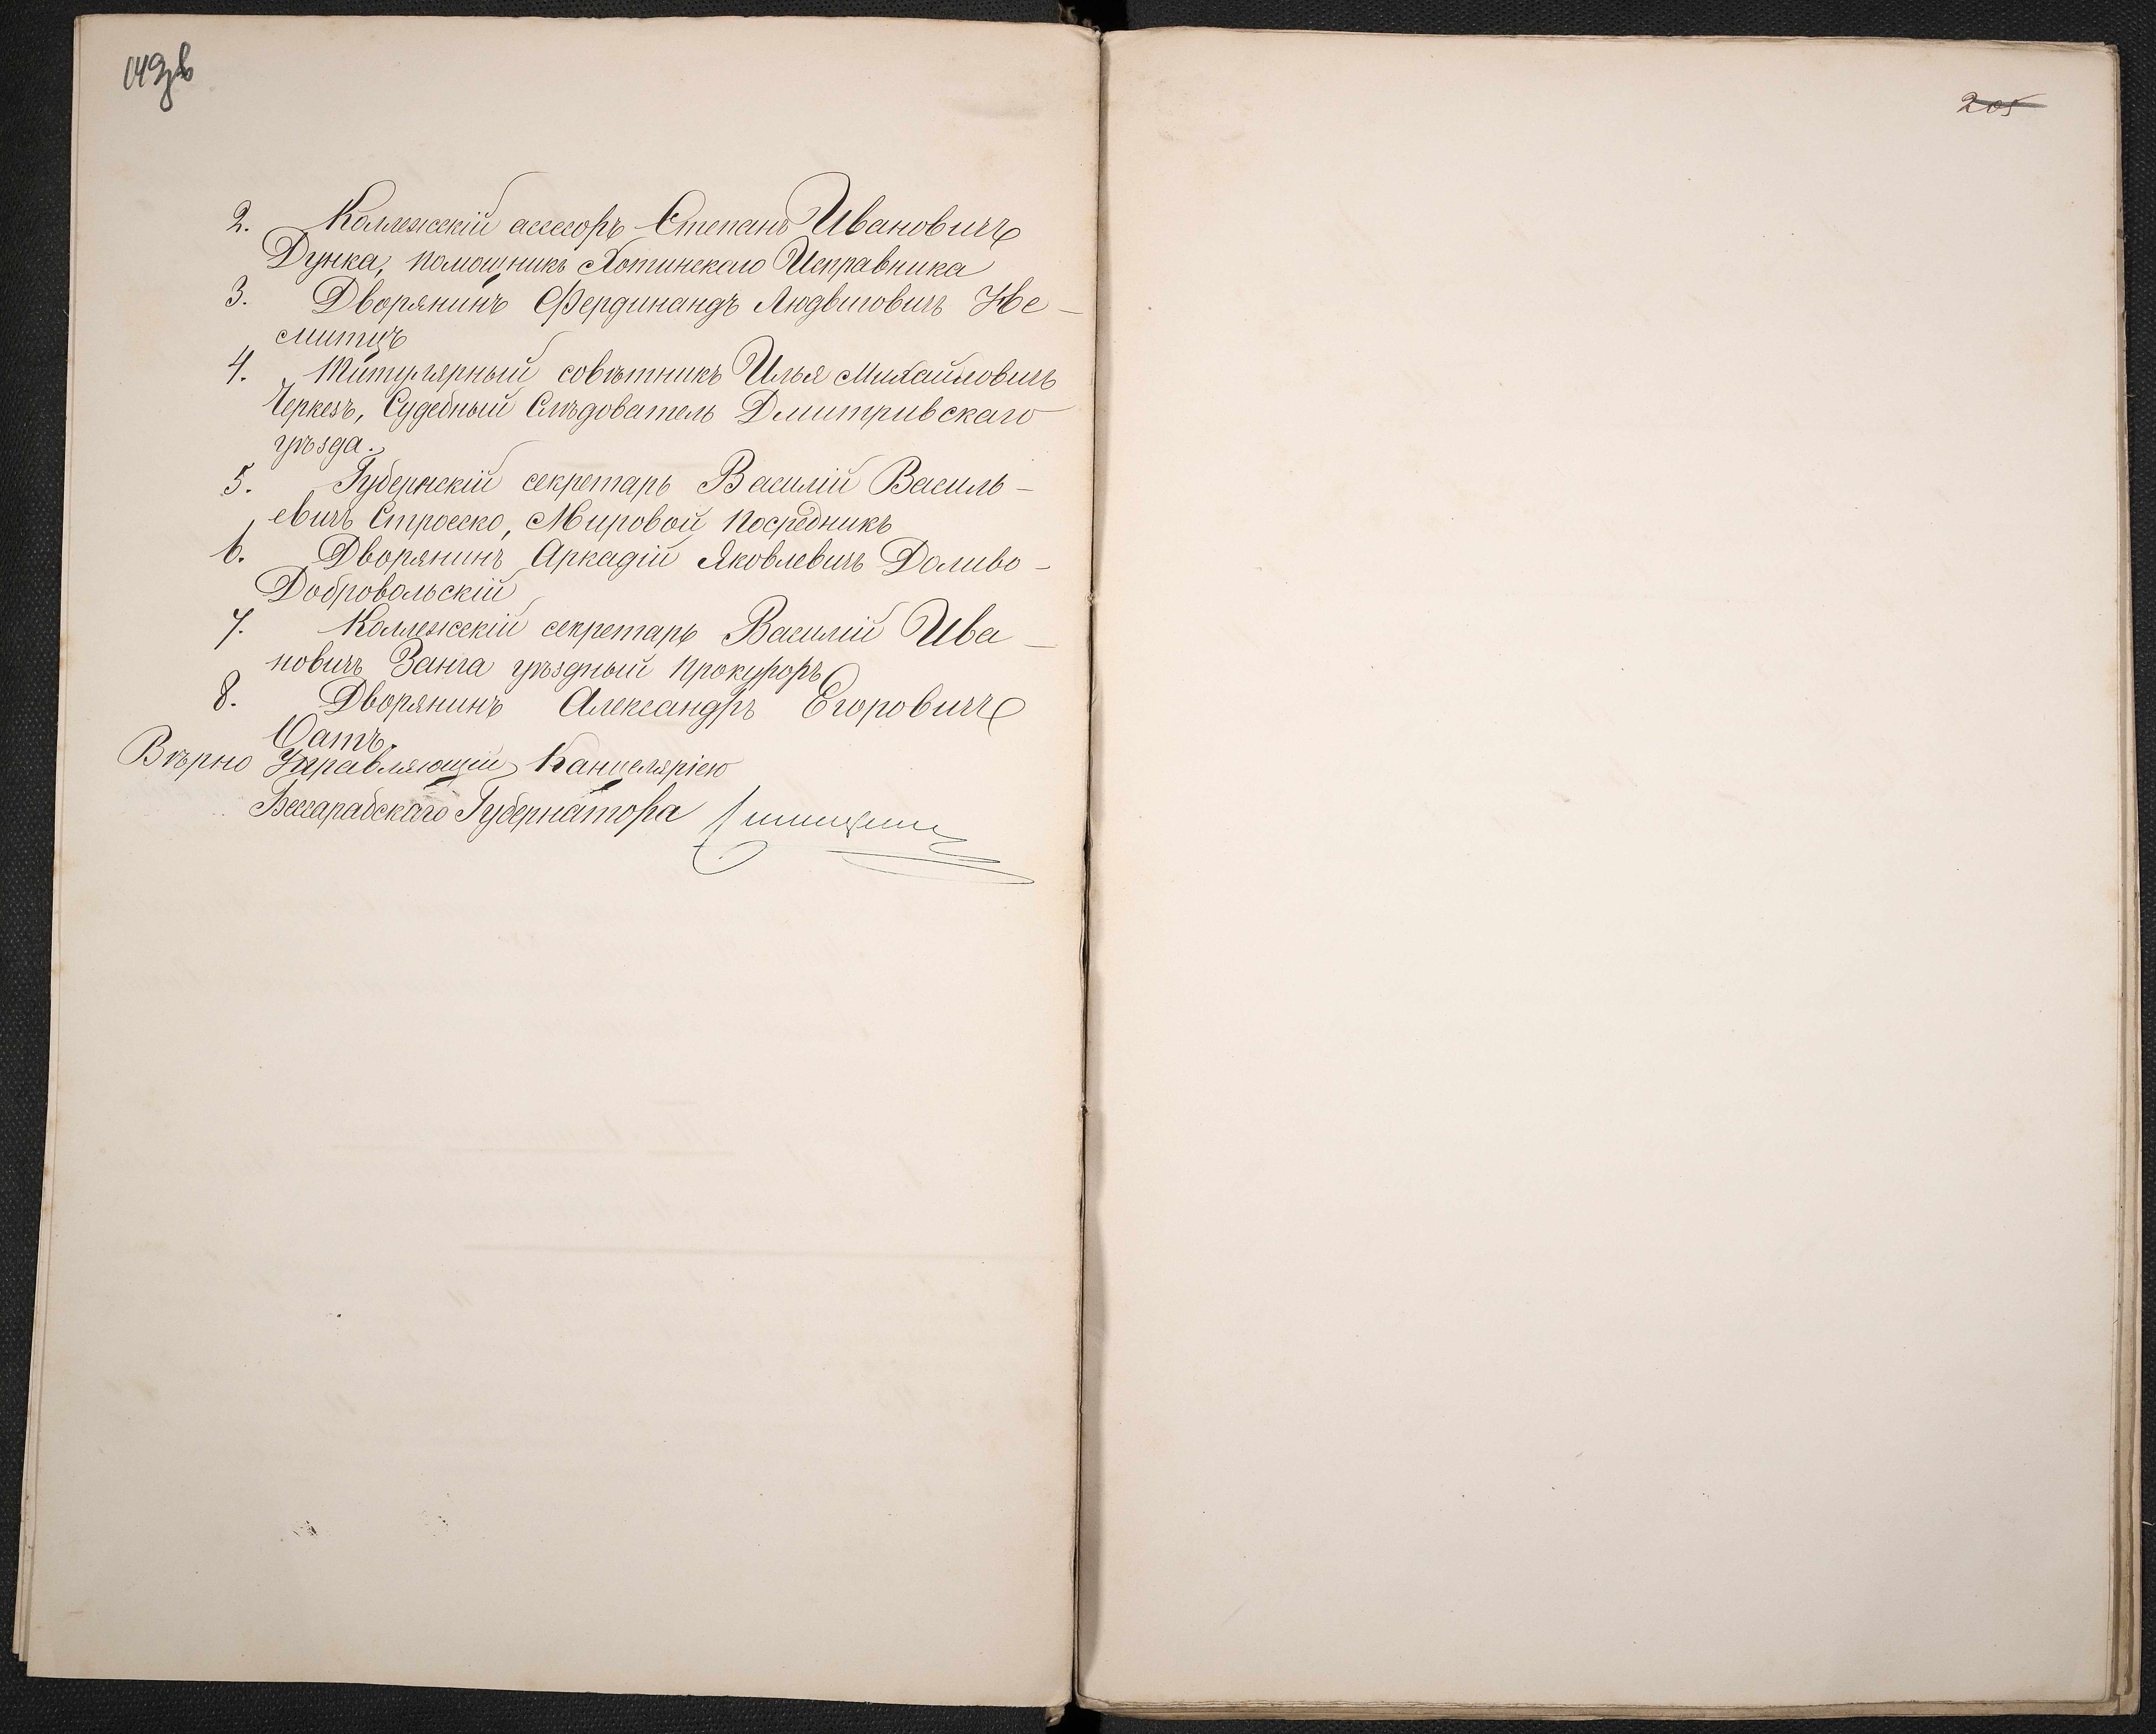 2. Коллежскій ассесоръ Степанъ Ивановичъ
Дунка, помощникъ Хотинскаго Исправника
3. Дворянинъ Фердинандъ Людвиговичъ Не-
митцъ
4. Титулярный совѣтникъ Илья Михайловичъ
Черкезъ, Судебный Слѣдователь Дмитривскаго
уѣзда.
5. Губернскій секретарь Василій Василь-
евичъ Строеско, Мировой Посредникъ
6. Дворянинъ Аркадій Яковлевичъ Доливо-
Добровольскій
7. Коллежскій секретарь Василій Ива-
новичъ Занга уѣздный Прокуроръ
8. Дворянинъ Александръ Егоровичъ
Оатъ.
Вѣрно Управляющій Канцеляріею
Бессарабскаго Губернатора
205